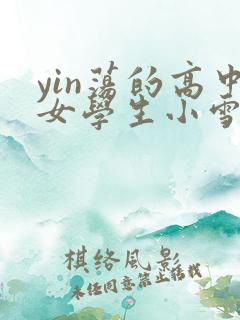 yin蕩的高中
女學生小雪
棋络風影
未经同意禁止转载